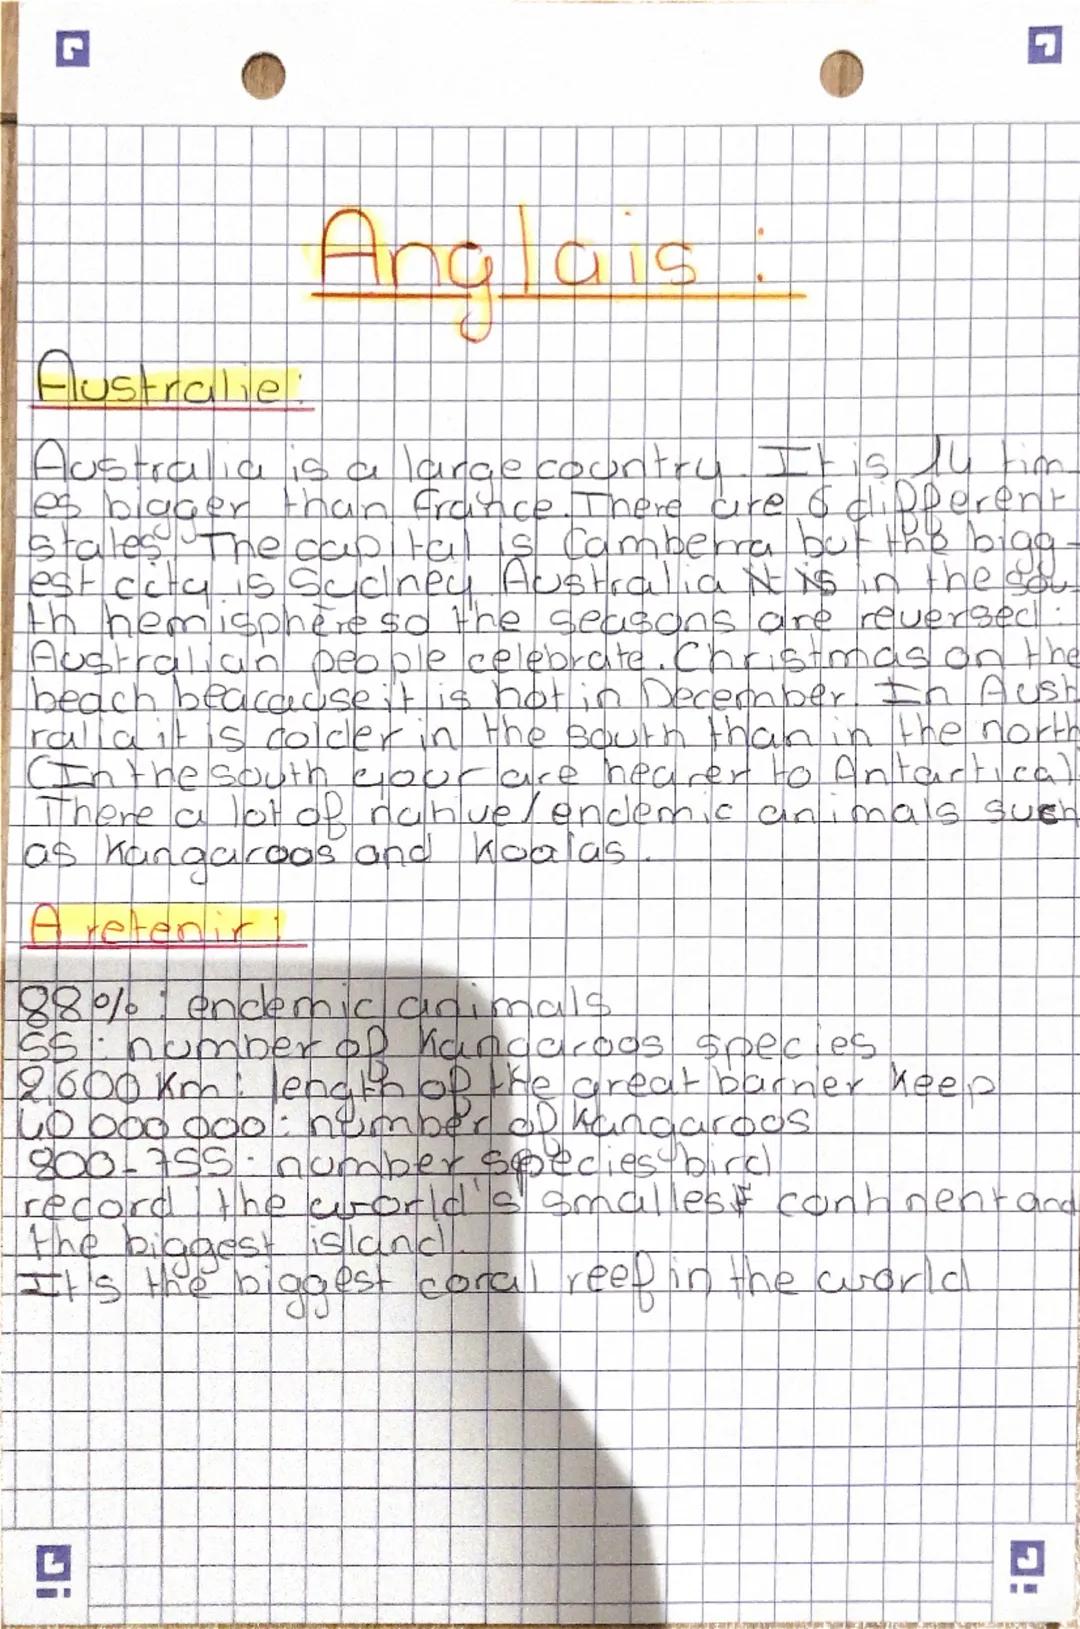 Anglais :
Australie :
Australia is a large country. It is 14 tim
es bigger than france. There are 6 different
states. The capital is Camberra but the bigg-
est city is Sydney. Australia is in the sou-
th hemisphère so the seasons are reversed :
Australian people celebrate. Christmas on the
beach beacause it is hot in December. In Aust
ralia it is colder in the south than in the north
(In the south your are nearer to Antartica)
There a lot of native/endemic animals such
as kangaroos and koalas.
A retenir :
88% : endemic animals
55 : number of kangaroos species
2,600 Km : length of the great barrier keep
40 000 000 : number of kangaroos
800-755 : number species bird
record : the world's smallest continent and
the biggest island.
It's the biggest coral reef in the world